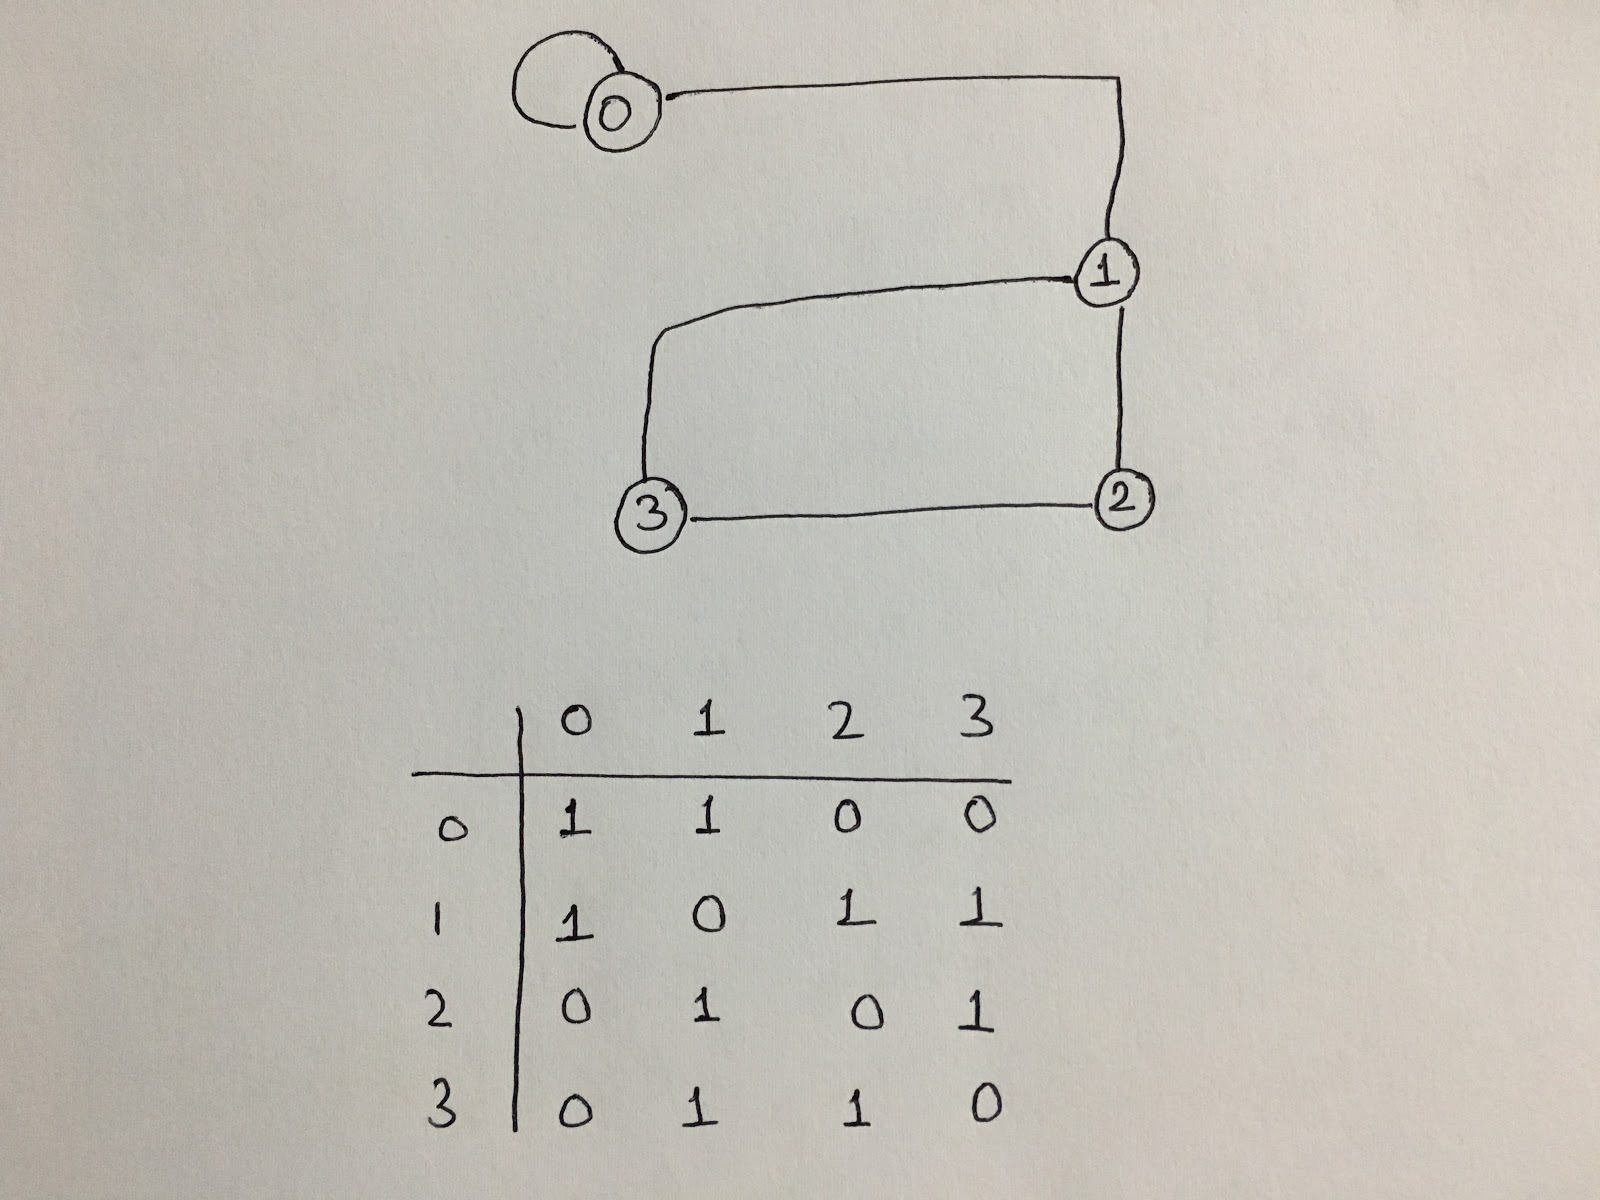 0
1
3 2
0 1 2 3
0 1 1 0 0
1 1 0 1 1
2 0 1 0 1
3 0 1 1 0